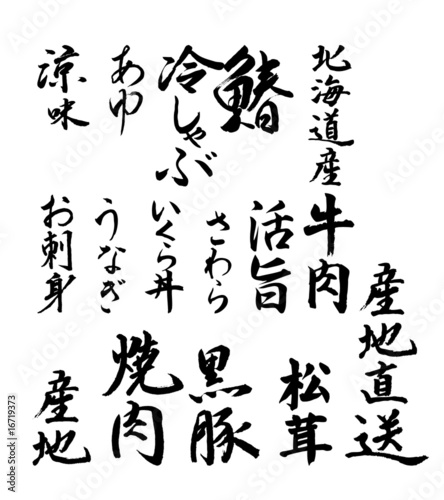 北海道産
鰆
冷しゃぶ
あゆ
涼味
牛肉
活旨
さわら
いくら丼
うなぎ
お刺身
産地直送
松茸
黒豚
焼肉
産地
Adobe Stock | #16719373